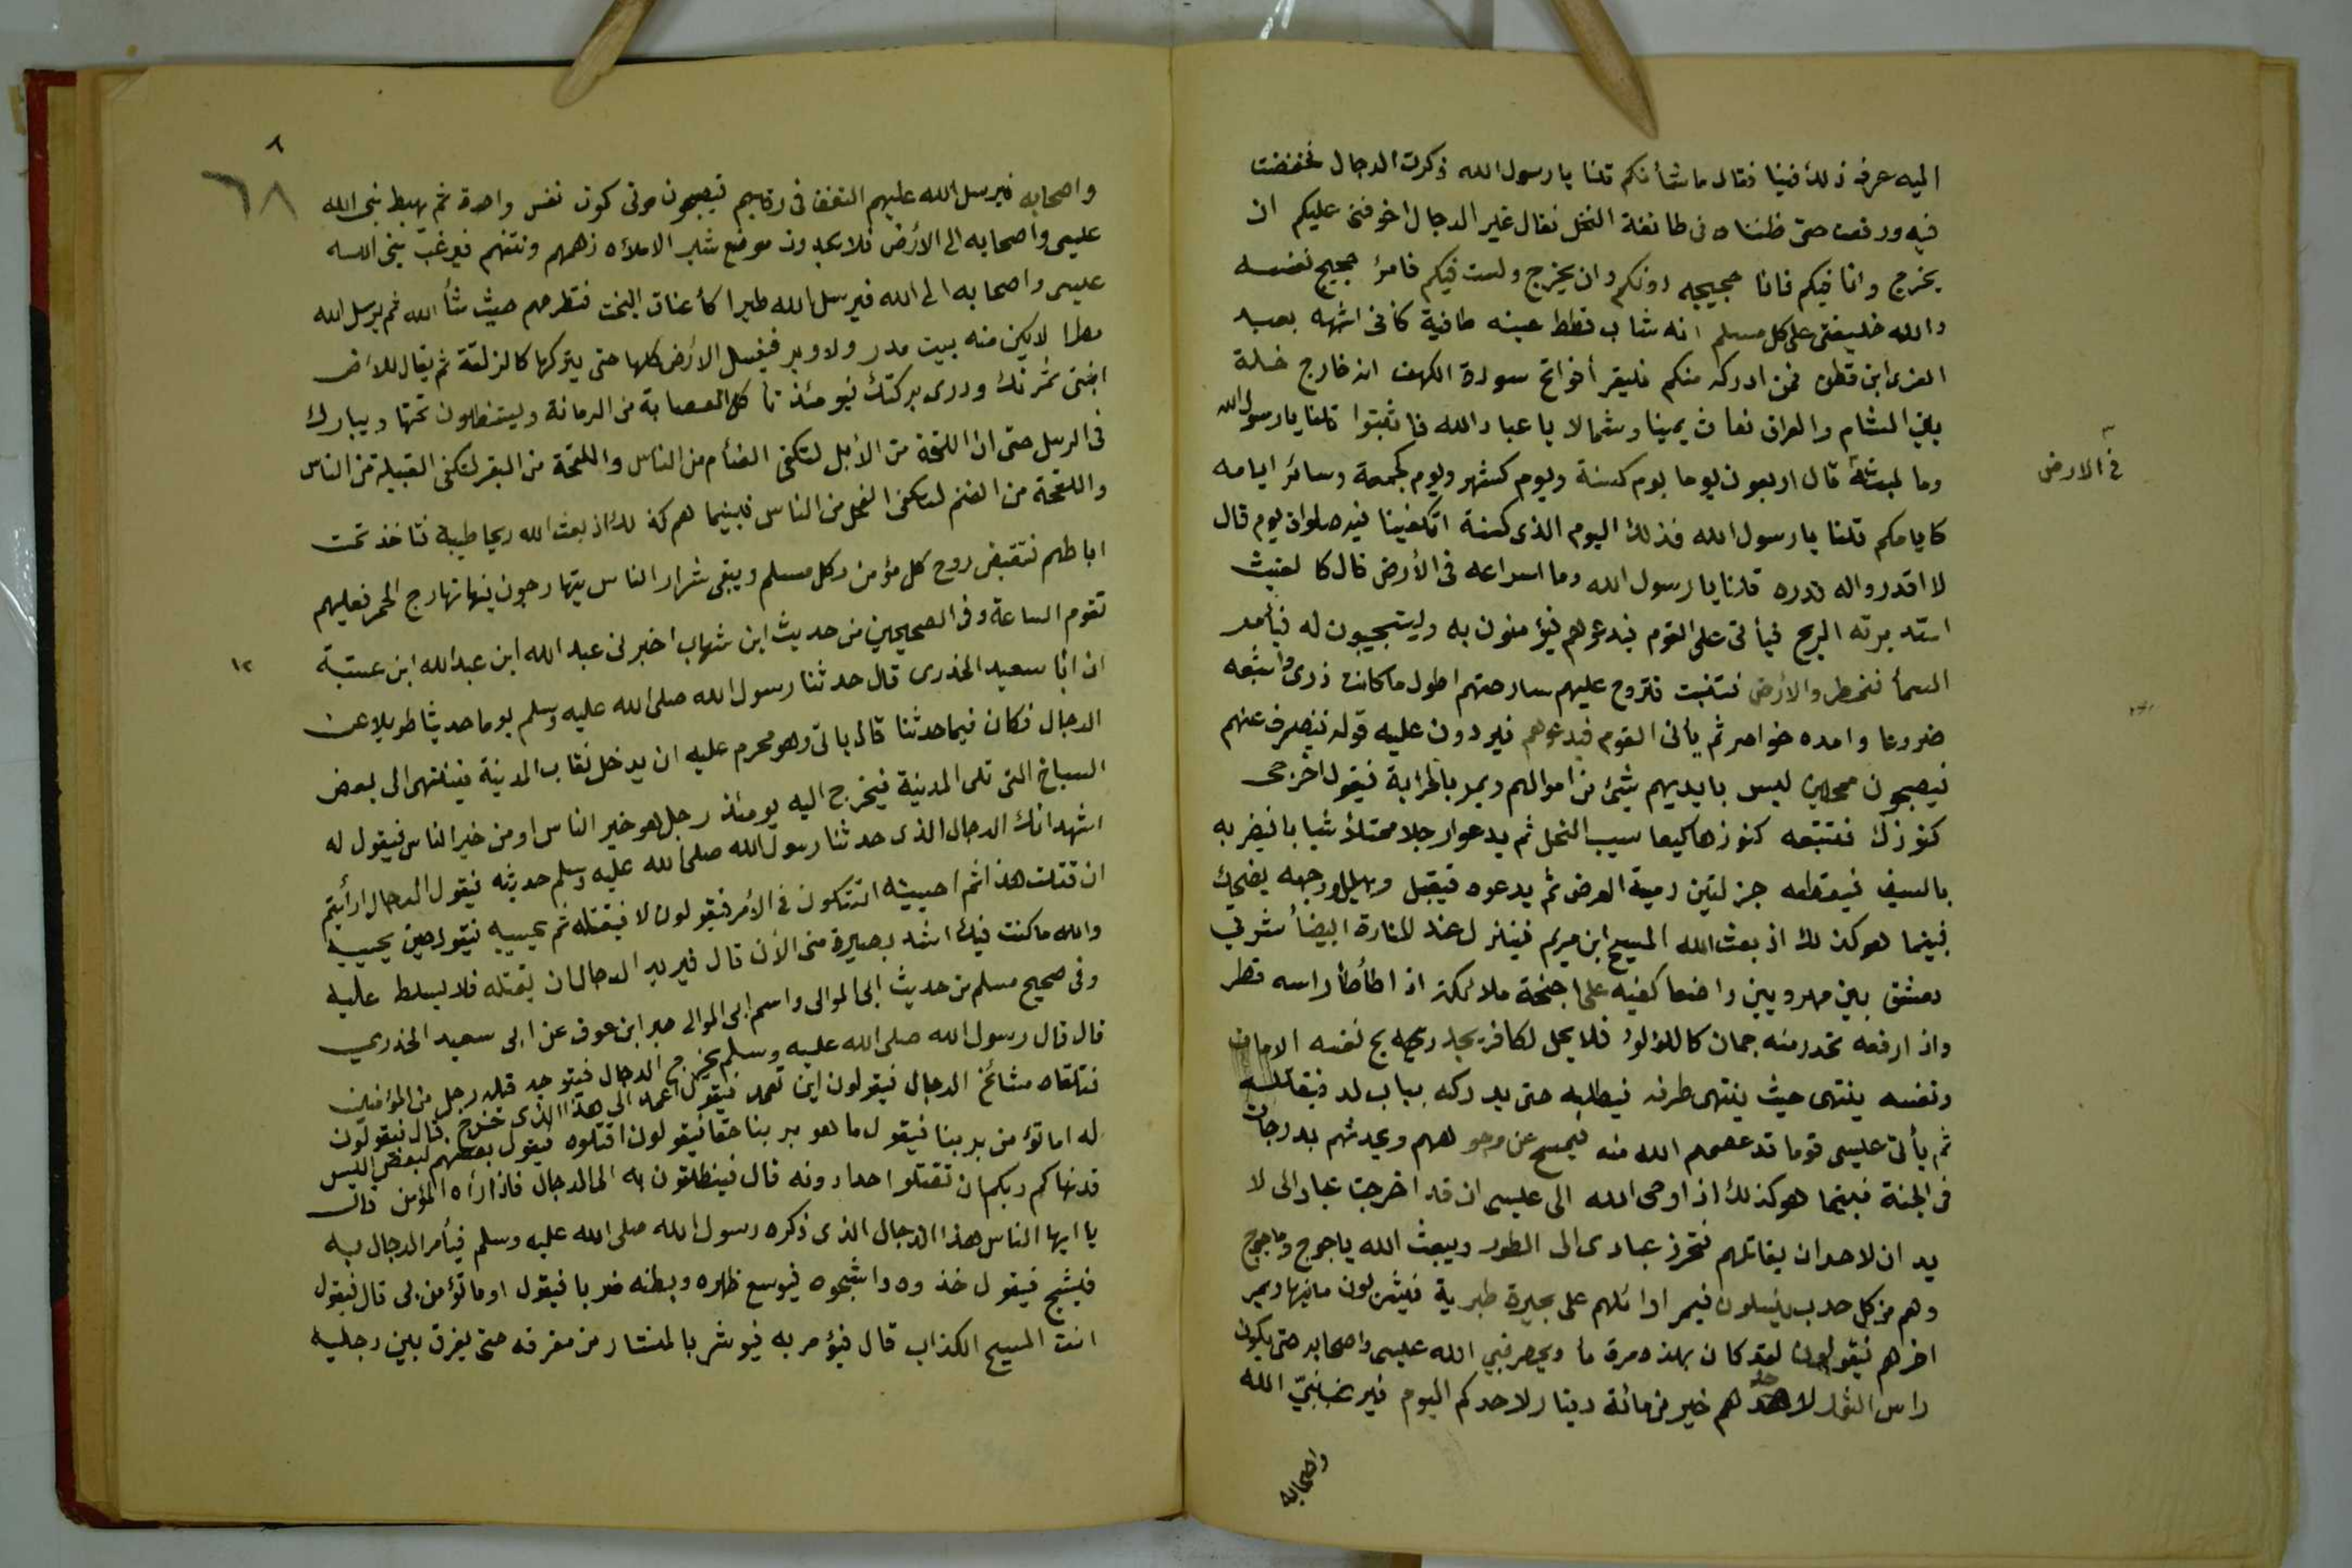 اليه عرف ذلك فينا فقال ما شأنكم قلنا يا رسول الله ذكرت الدجال فخفضت
فيه ورفعت حتى ظنناه في طائفة النخل فقال غير الدجال اخوفنى عليكم ان
يخرج وانا فيكم فانا حجيجه دونكم وان يخرج ولست فيكم فامرؤ حجيج نفسه
والله خليفتى على كل مسلم انه شاب قطط عينه طافية كأنى اشبهه بعبد
العزى ابن قطن فمن ادركه منكم فليقرأ فواتح سورة الكهف انه خارج خلة
بين الشام والعراق فعاث يمينا وشمالا يا عباد الله فاثبتوا قلنا يا رسول الله
وما لبثه قال اربعون يوما يوم كسنة ويوم كشهر ويوم كجمعة وسائر ايامه
في الارض
كايامكم قلنا يا رسول الله فذلك اليوم الذى كسنة اتكفينا فيه صلوات يوم قال
لا اقدروا له قدره قلنا يا رسول الله وما اسراعه فى الأرض قال كالغيث
استدبرته الريح فيأتى على القوم فيدعوهم فيؤمنون به ويستجيبون له فيأمر
السمأ فتمطر والأرض فتنبت فتروح عليهم سارحتهم اطول ما كانت ذرى واشبعه
ضروعا وامده خواصر ثم يأتى القوم فيدعوهم فيردون عليه قوله فينصرف عنهم
فيصبحون ممحلين ليس بايديهم شيئ من اموالهم ويمر بالخرابة فيقول اخرجى
كنوزك فتتبعه كنوزها كيعاسيب النحل ثم يدعوا رجلا ممتلأ شبابا فيضربه
بالسيف فيقطعه جزلتين رمية الغرض ثم يدعوه فيقبل ويهلل وجهه يضحك
فبينما هو كذلك اذ بعث الله المسيح ابن مريم فينزل عند المنارة البيضأ شرقي
دمشق بين مهرودتين واضعا كفيه على اجنحة ملائكة اذا طأطأ راسه قطر
واذا رفعه تحدر منه جمان كاللؤلؤ فلا يحل لكافر يجد ريح نفسه الا مات
ونفسه ينتهى حيث ينتهى طرفه فيطلبه حتى يدركه بباب لد فيقتله
ثم يأتى عيسى قوما قد عصمهم الله منه فيمسح عن وجوههم ويحدثهم بدرجات
فى الجنة فبينما هو كذلك اذ اوحى الله الى عيسى انى قد اخرجت عبادا لى لا
يدان لاحد ان يقاتلهم فحرز عبادى الى الطور ويبعث الله ياجوج وماجوج
وهم من كل حدب ينسلون فيمر اوائلهم على بحيرة طبرية فيشربون ما فيها ويمر
اخرهم فيقولون لقد كان بهذه مرة مأ ويحصر نبي الله عيسى واصحابه حتى يكون
راس الثور لاحدهم خير من مائة دينار لاحدكم اليوم فيرغب نبيّ الله
واصحابه
٨
٦٨
واصحابه فيرسل الله عليهم النغف فى رقابهم فيصبحون موتى كموت نفس واحدة ثم يهبط نبى الله
عليسى واصحابه الى الأرض فلا يجدون موضع شبر الا ملأه زهمهم ونتنهم فيرغب نبى الله
عليسى واصحابه الى الله فيرسل الله طيرا كأعناق البخت فتطرحهم حيث شأ الله ثم يرسل الله
مطرا لا يكن منه بيت مدر ولا وبر فيغسل الارض كلها حتى يتركها كالزلقة ثم يقال للارض
انبتى ثمرتك وردى بركتك فيومئذ تأكل العصابة من الرمانة ويستظلون تحتها ويبارك
فى الرسل حتى ان اللقحة من الأبل لتكفى الفئام من الناس واللقحة من البقر لتكفى القبيلة من الناس
واللقحة من الغنم لتكفى الفخل من الناس فبينما هم كذلك اذ بعث الله ريحا طيبة فتاخذ تحت
اباطهم فتقبض روح كل مؤمن وكل مسلم ويبقى شرار الناس يتهارجون فيها تهارج الحمر فعليهم
تقوم الساعة وفى الصحيحين من حديث ابن شهاب اخبرنى عبد الله ابن عبد الله ابن عتبة
١٢
ان ابا سعيد الخدرى قال حدثنا رسول الله صلى الله عليه وسلم يوما حديثا طويلا عن
الدجال فكان فيما حدثنا قال يأتى وهو محرم عليه ان يدخل نقاب المدينة فينتهى الى بعض
السباخ التى تلى المدينة فيخرج اليه يومئذ رجل هو خير الناس او من خير الناس فيقول له
اشهد انك الدجال الذى حدثنا رسول الله صلى الله عليه وسلم حديثه فيقول الدجال ارأيتم
ان قتلت هذا ثم احييته اتشكون فى الأمر فيقولون لا فيقتله ثم يحييه فيقول حين يحييه
والله ما كنت فيك اشد بصيرة منى الأن قال فيريد الدجال ان يقتله فلا يسلط عليه
وفى صحيح مسلم من حديث ابى الموالى واسم ابى الموالى جبر ابن عوف عن ابى سعيد الخدري
قال قال رسول الله صلى الله عليه وسلم يخرج الدجال فيتوجه قبله رجل من المؤمنين
فتلقاه مشائخ الدجال فيقولون اين تعمد فيقول اعمد الى هذا الذى خرج قال فيقولون
له اما تؤمن بربنا فيقول ما هو بربنا حقا فيقولون اقتلوه فيقول بعضهم لبعض اليس
قد نهاكم ربكم ان تقتلوا احدا دونه قال فينطلقون به الى الدجال فاذا رأه المؤمن قال
يا ايها الناس هذا الدجال الذى ذكره رسول الله صلى الله عليه وسلم فيأمر الدجال به
فيشبح فيقول خذوه واشبحوه فيوسع ظهره وبطنه ضربا فيقول اوما تؤمن بى قال فيقول
انت المسيح الكذاب قال فيؤمر به فيوشر بالمنشار من مفرقه حتى يفرق بين رجليه